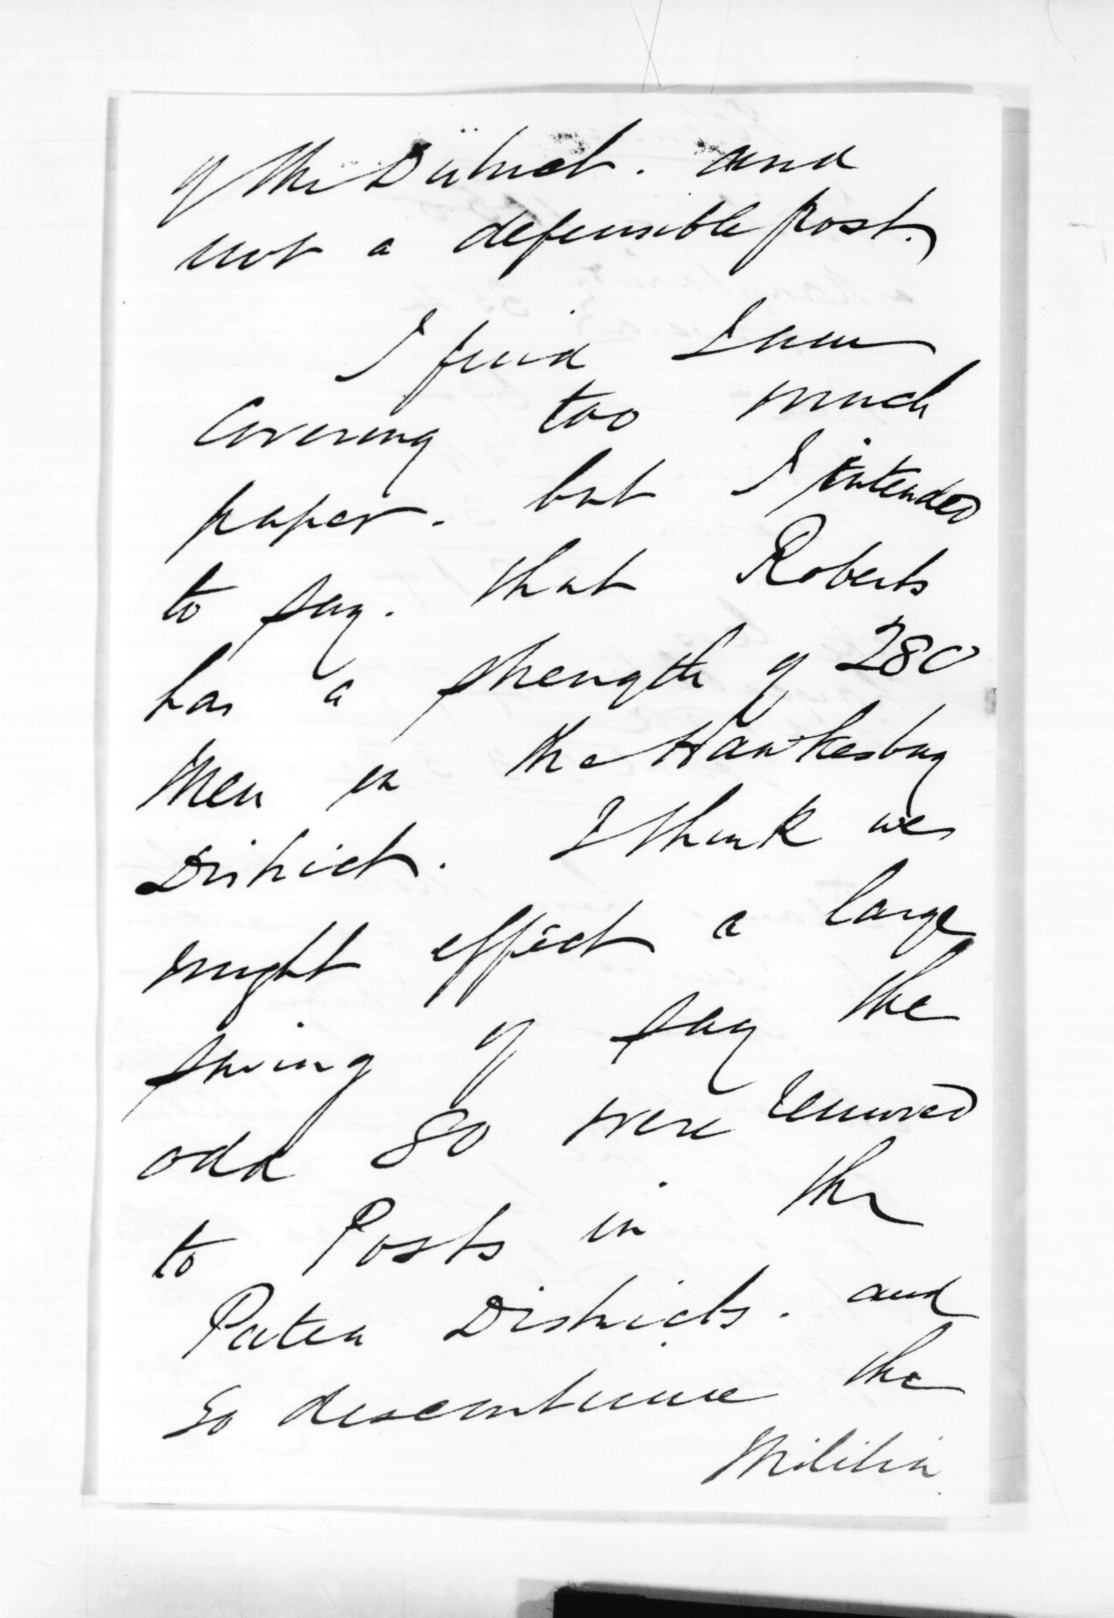 of the District. and
not a defensible post.
I find I am
Covering too much
paper. but I intended
to say. that Roberts
has a strength of 280
Men in the Hawkesbury
District. I think we
might effect a large
saving if say the
odd 80 were removed
to Posts in the
Patea Districts. and
so discontinue the
Militia